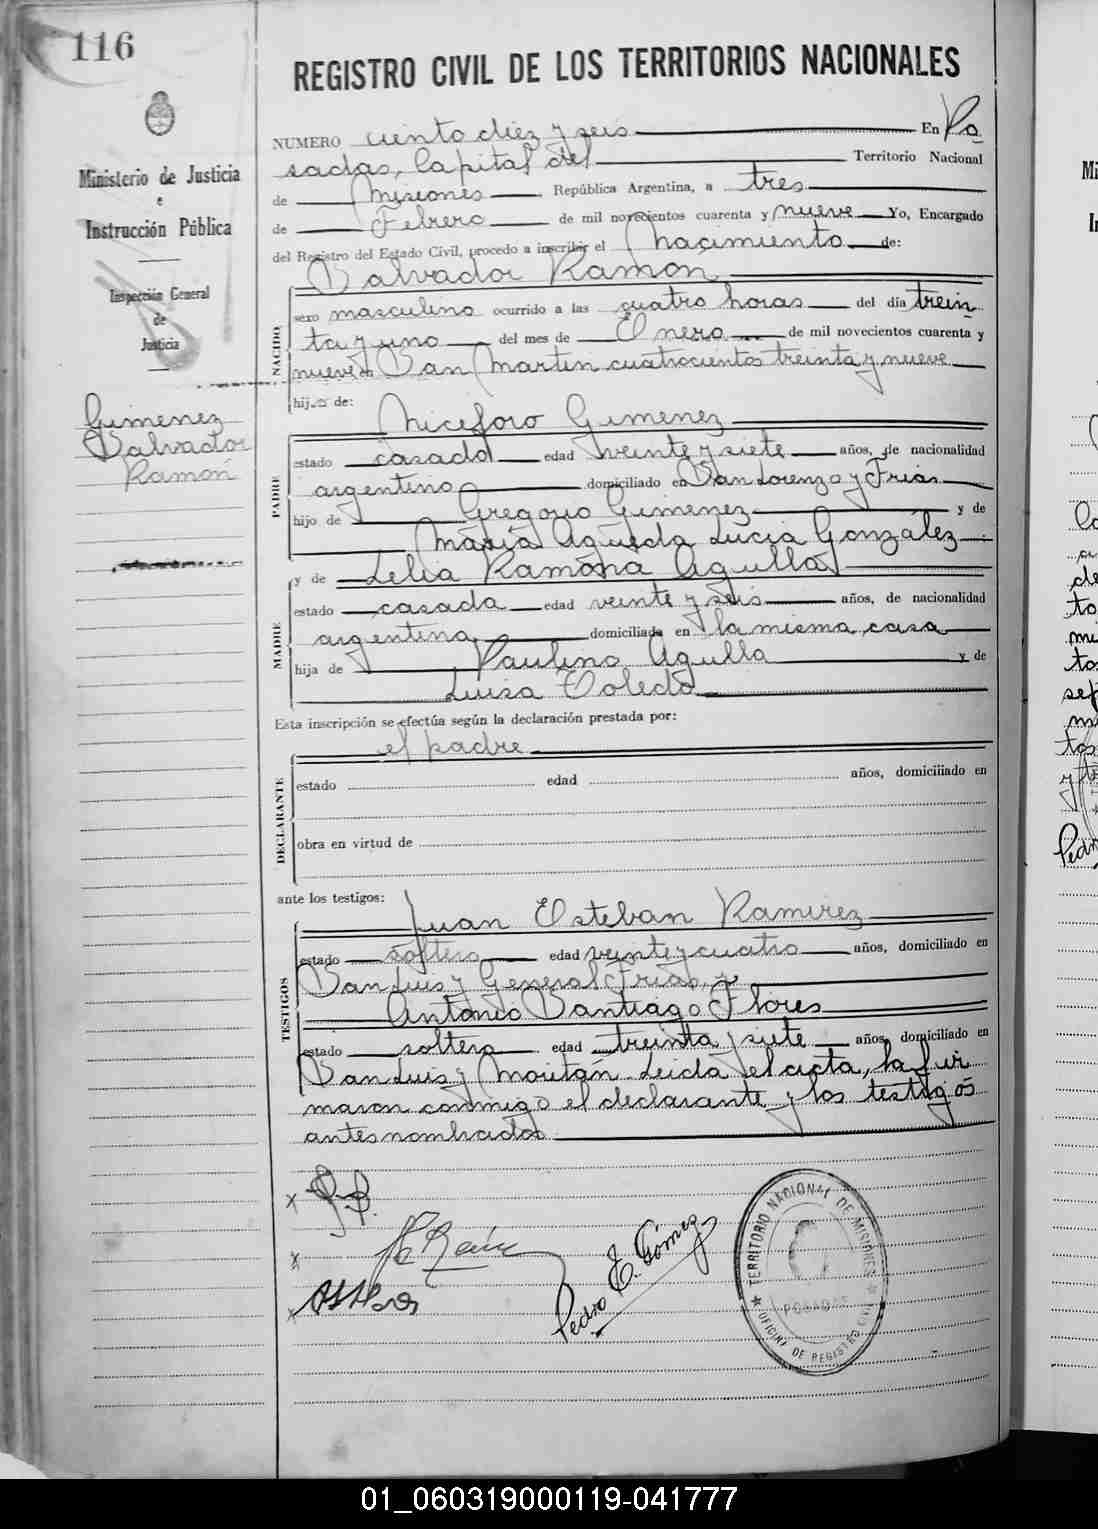 116
REGISTRO CIVIL DE LOS TERRITORIOS NACIONALES
Ministerio de Justicia
e
Instrucción Pública
Inspección General
de
Justicia
Gimenez
Salvador
Ramón
NUMERO ciento diez y seis En Po
sadas, Capital del Territorio Nacional
de Misiones República Argentina, a tres
de Febrero de mil novecientos cuarenta y nueve Yo, Encargado
del Registro del Estado Civil, procedo a inscribir el Nacimiento de:
NACIDO
Salvador Ramón
sexo masculino ocurrido a las cuatro horas del día trein
ta y uno del mes de Enero de mil novecientos cuarenta y
nueve San Martin cuatrocientos treinta y nueve
hijo de:
Niceforo Gimenez
PADRE
estado casado edad veinte y siete años, de nacionalidad
argentino domiciliado en San Lorenzo y Frias
hijo de Gregorio Gimenez y de
Maria Agueda Lucia Gonzalez
y de Lelia Ramona Agulla
MADRE
estado casada edad veinte y seis años, de nacionalidad
argentina domiciliada en la misma casa
hija de Paulino Agulla y de
Luisa Toledo
Esta inscripción se efectúa según la declaración prestada por:
el padre
DECLARANTE
estado edad años, domiciliado en
obra en virtud de
ante los testigos:
Juan Esteban Ramirez
TESTIGOS
estado soltero edad veinte y cuatro años, domiciliado en
San Luis y General Frias, y
Antonio Santiago Flores
estado soltero edad treinta y siete años, domiciliado en
San Luis y Moritán Leida el acta, la fir
maron conmigo el declarante y los testigos
antes nombrados
Pedro E. Gómez
TERRITORIO NACIONAL DE MISIONES
POSADAS
OFICINA DE REGISTRO CIVIL
01_060319000119-041777